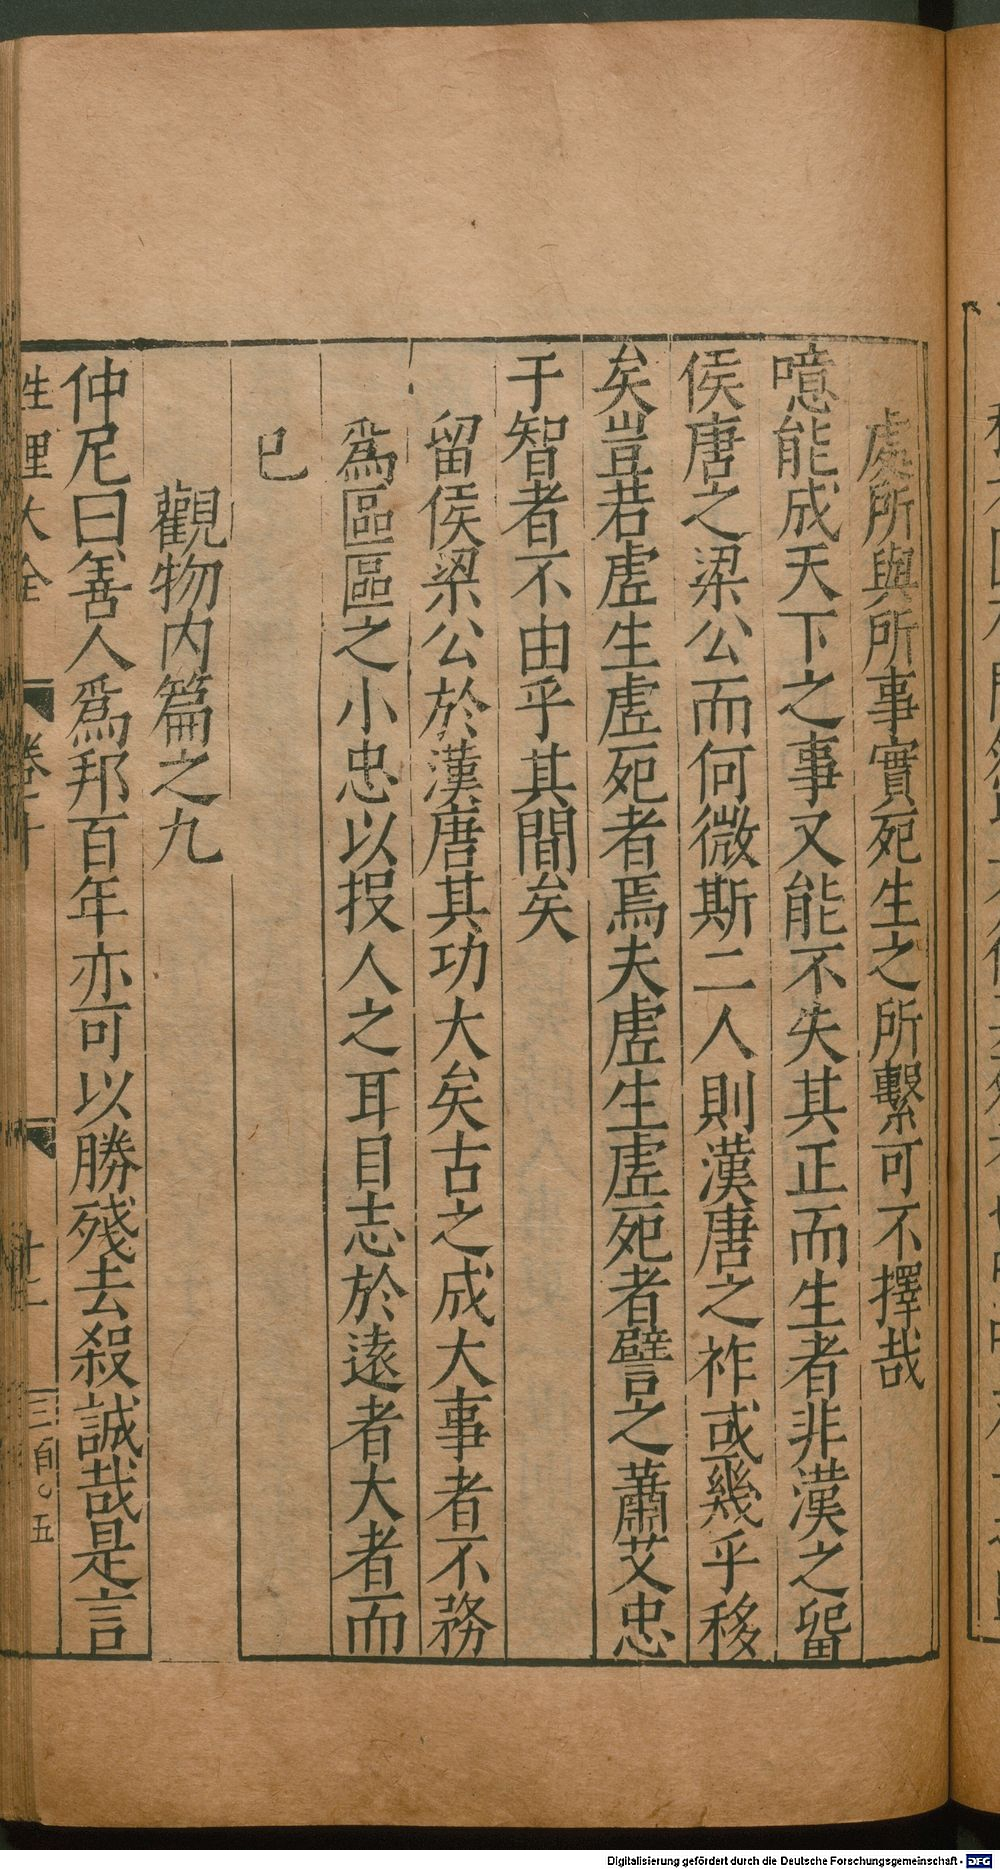 處所與所事實死生之所繫可不擇哉
噫能成天下之事又能不失其正而生者非漢之留
侯唐之梁公而何微斯二人則漢唐之祚或幾乎移
矣豈若虛生虛死者焉夫虛生虛死者譬之蕭艾忠
于智者不由乎其間矣
留侯梁公於漢唐其功大矣古之成大事者不務
爲區區之小忠以投人之耳目志於遠者大者而
已
觀物内篇之九
仲尼曰善人爲邦百年亦可以勝殘去殺誠哉是言
性理大全 卷十
Digitalisierung gefördert durch die Deutsche Forschungsgemeinschaft - DFG